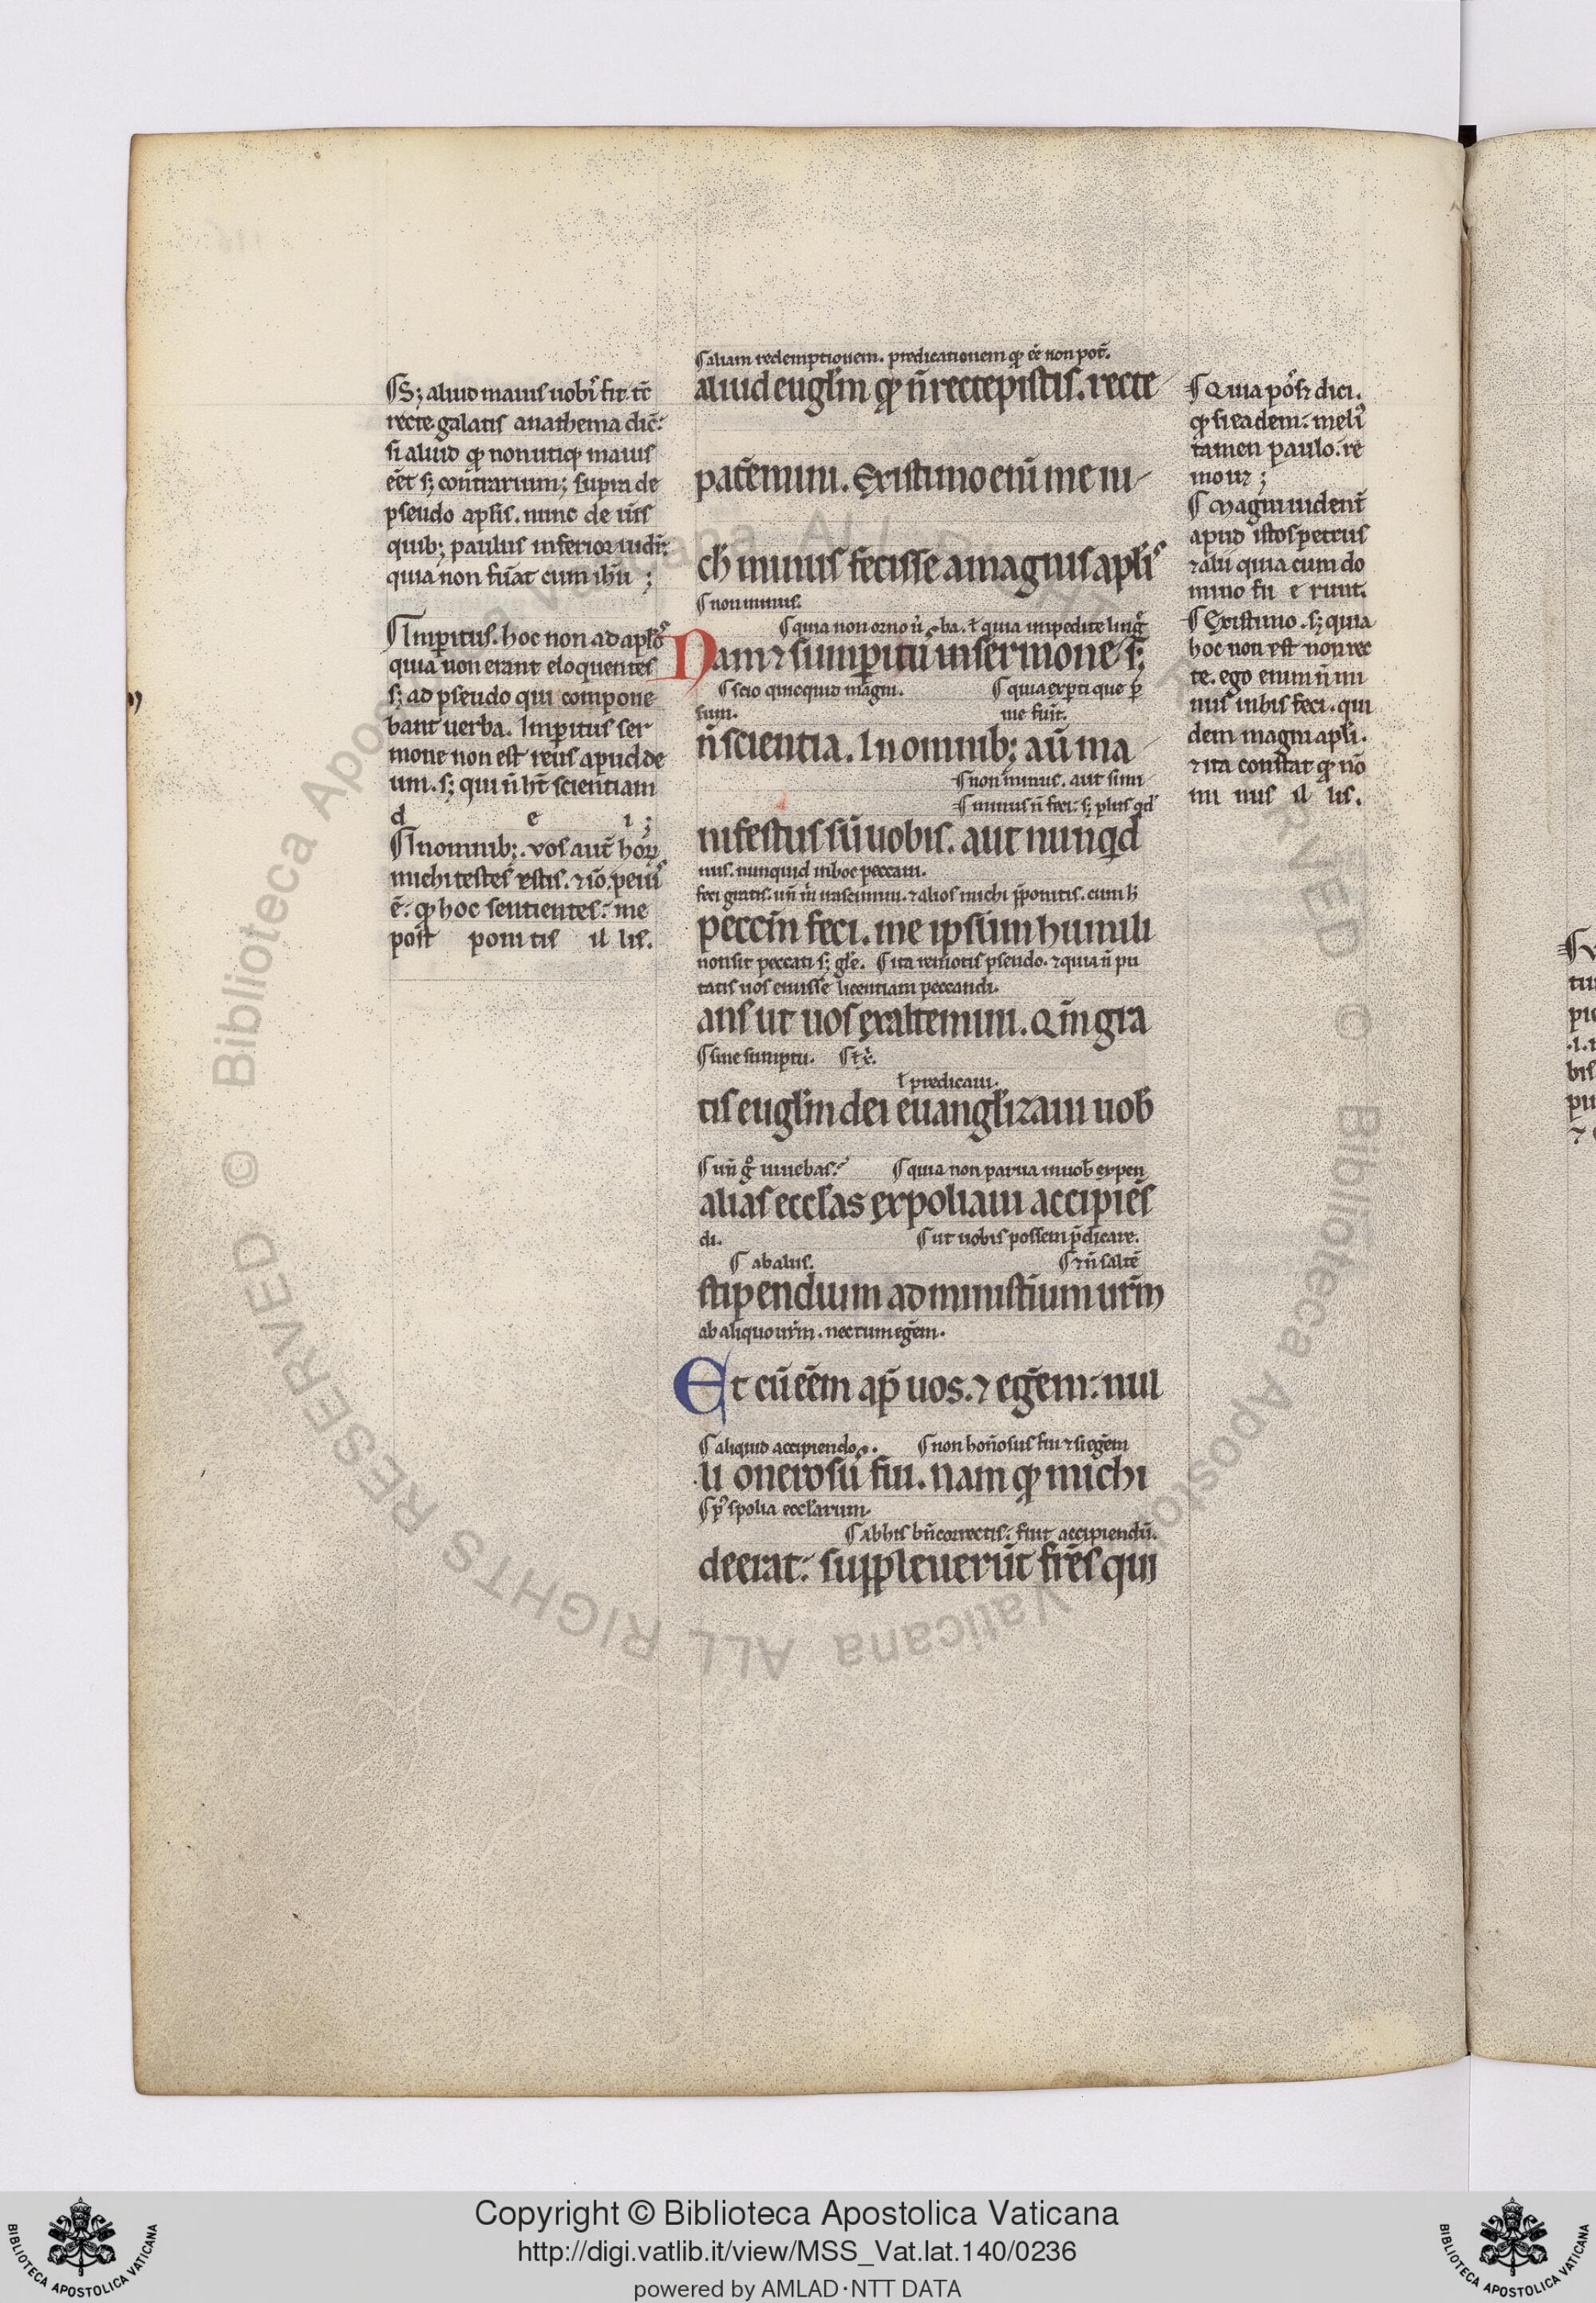 ¶ S; aliud maius uobiſ fit. tc̄
recte galatis anathema dic̄:
si aliud qꝫ non utiqꝫ maius
eēt s; contrarium; supra de
pseudo apl̄is. nunc de ueris
quib; paulus inferior uidet̄
quia non fuerat cum ih̄u ;
¶ Imꝑitus. hoc non ad apl̄oſ
quia non erant eloquentes
s; ad pseudo qui compone
bant uerba. Imꝑitus ser
mone non est reus apud de
um. s; qui n̄ ht̄ scientiam
d e i ;
¶ In omnib;. vos aut̄ horꝝ
michi testes estis. ⁊ iō peiuſ
ē: qꝫ hoc sentientes: me
post ponitis il lis.
¶ aliam redemptionem. predicationem qꝫ eē non pot̄.
aliud euglīm qꝫ n̄ recepistis. recte
pat̄emini. Existimo enī me ni
ch̄ minus fecisse a magnis apl̄iſ
¶ non minus.
¶ quia non orno ūba. ł quia impedite lingͣ
Nam ⁊ si imꝑitū in sermone s;
¶ scio quicquid magni. ¶ quia exꝑti que ꝑ
sum. me fiūt.
n̄ scientia. In omnib; aū ma
¶ non minus. aut simi
¶ minus n̄ feci: s; plus qd̄
nifestus sū uobis. aut nunqd
nus. nunquid in hoc peccaui.
feci gratis. un̄ m̄ irascimini. ⁊ alios michi p̄ponitis. cum h̄
peccm̄ feci. me ipsum humili
non sit peccati s; gl̄e. ¶ ita remotis pseudo. ⁊ quia n̄ pu
tatis uos emisse licentiam peccandi.
ans ut uos exaltemini. Qm̄ gra
¶ sine sumptu. ¶ ⁊c̄.
ł predicaui.
tis euglīm dei euangl̄izaui uob̄
¶ un̄ gͦ uiuebas: ¶ quia non parua in uob̄ expen
alias ecclas expoliaui accipiēs
di. ¶ ut uobis possem p̄dicare.
¶ ab aliis. ¶ ⁊ n̄ saltē
stipendium ad minist̄ium ur̄m
ab aliquo ur̄m. nec cum egēm.
Et cū eēm ap̄ uos. ⁊ egēm: nul
¶ aliquid accipiendo. ¶ non hon̄osus fui ⁊ si egēm
li onerosū fui. nam qꝫ michi
¶ pꝰ spolia eccl̄arum.
¶ ab his bn̄ correctis: fiūt accipiendū.
deerat: suppleuerūt frēs qui
¶ Quia pōs; dici.
qꝫ si eadem: meliꝰ
tamen paulo. re
mouꝫ ;
¶ Magni uident̄
apud istos petrus
⁊ alii quia cum do
mino fu e runt.
¶ Existimo. s; quia
hoc non est non rec
te. ego enim n̄ mi
nus in bis feci. qui
dem magni apl̄i.
⁊ ita constat qꝫ nō
mi nus il lis.
Copyright © Biblioteca Apostolica Vaticana
http://digi.vatlib.it/view/MSS_Vat.lat.140/0236
powered by AMLAD·NTT DATA